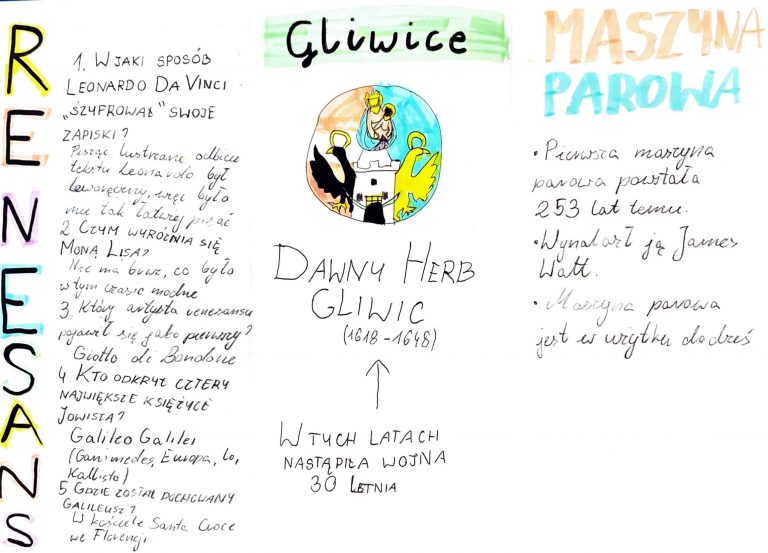 RENESANS
1. W JAKI SPOSÓB
LEONARDO DA VINCI
„SZYFROWAŁ" SWOJE
ZAPISKI?
Pisząc lustrzane odbicie
tekstu Leonardo był
leworęczny, więc było
mu tak łatwiej pisać
2 CZYM WYRÓŻNIA SIĘ
MONA LISA?
Nie ma brwi, co było
w tym czasie modne
3. Który artysta renesansu
pojawił się jako pierwszy?
Giotto di Bondone
4 KTO ODKRYŁ CZTERY
NAJWIĘKSZE KSIĘŻYCE
JOWISZA?
Galileo Galilei
(Ganimedes, Europa, Io,
Kallisto)
5 GDZIE ZOSTAŁ POCHOWANY
GALILEUSZ?
W kościele Santa Croce
we Florencji
Gliwice
DAWNY HERB
GLIWIC
(1618-1648)
W TYCH LATACH
NASTĄPIŁA WOJNA
30 LETNIA
MASZYNA
PAROWA
• Pierwsza maszyna
parowa powstała
253 lat temu.
• Wynalazł ją James
Watt.
• Maszyna parowa
jest w użytku do dziś